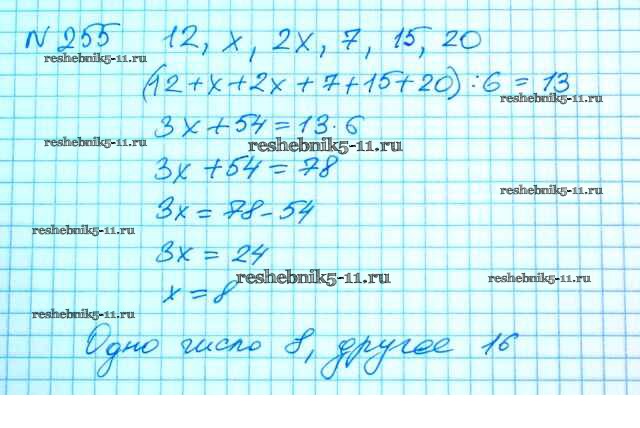 № 255 12, x, 2x, 7, 15, 20
reshebnik5-11.ru
(12+x+2x+7+15+20):6=13
reshebnik5-11.ru
3x+54=13·6
reshebnik5-11.ru
reshebnik5-11.ru
3x+54=78
reshebnik5-11.ru
3x=78-54
reshebnik5-11.ru
3x=24
reshebnik5-11.ru
reshebnik5-11.ru
x=8
reshebnik5-11.ru
Одно число 8, другое 16